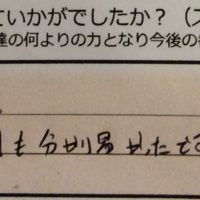 ていかがでしたか？（ス
達の何よりの力となり今後の
も分かり易かったです